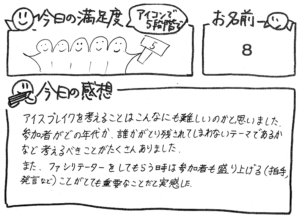 今日の満足度
アイコンで
5段階で
お名前
5
8
今日の感想
アイスブレイクを考えることはこんなにも難しいのかと思いました。
参加者がどの年代か、誰かがとり残されてしまわないテーマであるか
など考えるべきことがたくさんありました。
また、ファシリテーターをしてもらう時は参加者も盛り上げる(拍手、
発言など)ことがとても重要なことだと実感した。